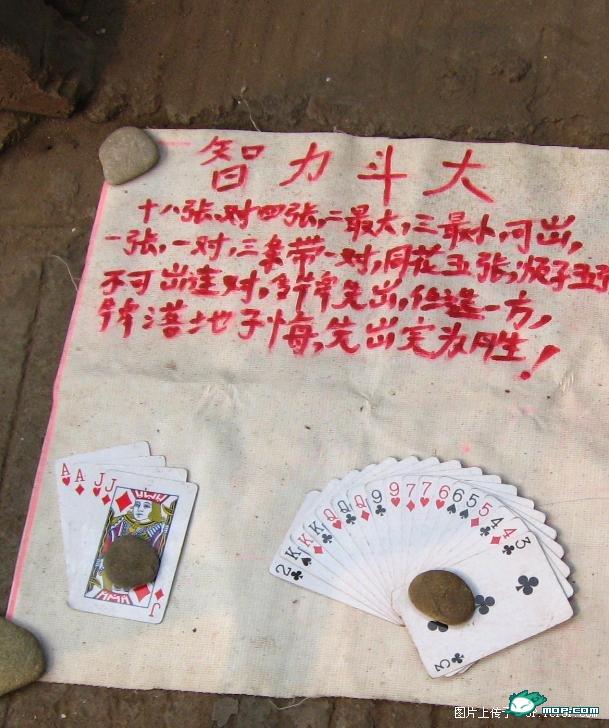 智力斗大
十八张,对四张,二最大,三最小,可出,
一张,一对,三条带一对,同花五张,顺子五
不可出连对,多牌先出,任选一方,
牌落地子悔,先出完为胜!
A A J J
J
2 K K K Q Q Q 9 9 7 7 6 6 5 5 4 4 3
3
图片上传于
mop.com